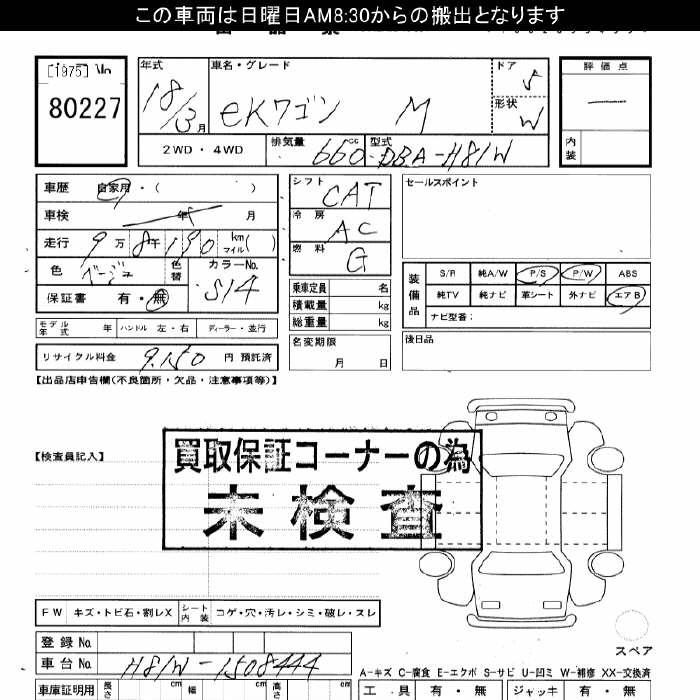 この車両は日曜日AM8:30からの搬出となります
[1975] No
80227
年式 車名・グレード ドア 評価点
18/3月 eKワゴン M 5
形状 W
2WD・4WD 排気量 660cc 型式 DBA-H81W 内装
車歴 自家用・( ) シフト CAT セールスポイント
車検 年 月 冷房 AC
走行 9万8千190 km マイル( ) 燃料 G
色 ベージュ 色替 カラーNo. S14
保証書 有・無
装備品 S/R 純A/W P/S P/W ABS
純TV 純ナビ 革シート 外ナビ エアB
ナビ型番:
乗車定員 名
積載量 kg
総重量 kg
モデル年式 年 ハンドル 左・右 ディーラー・並行
名変期限 月 日
後日品
リサイクル料金 9,150 円 預託済
【出品店申告欄(不良箇所・欠品・注意事項等)】
【検査員記入】
買取保証コーナーの為
未検査
FW キズ・トビ石・割レX シート内装 コゲ・穴・汚レ・シミ・破レ・スレ
スペア
登録No
車台No H81W-1508444
A-キズ C-腐食 E-エクボ S-サビ U-凹ミ W-補修 XX-交換済
車庫証明用 長さ cm 幅 cm 高さ cm 工具 有・無 ジャッキ 有・無